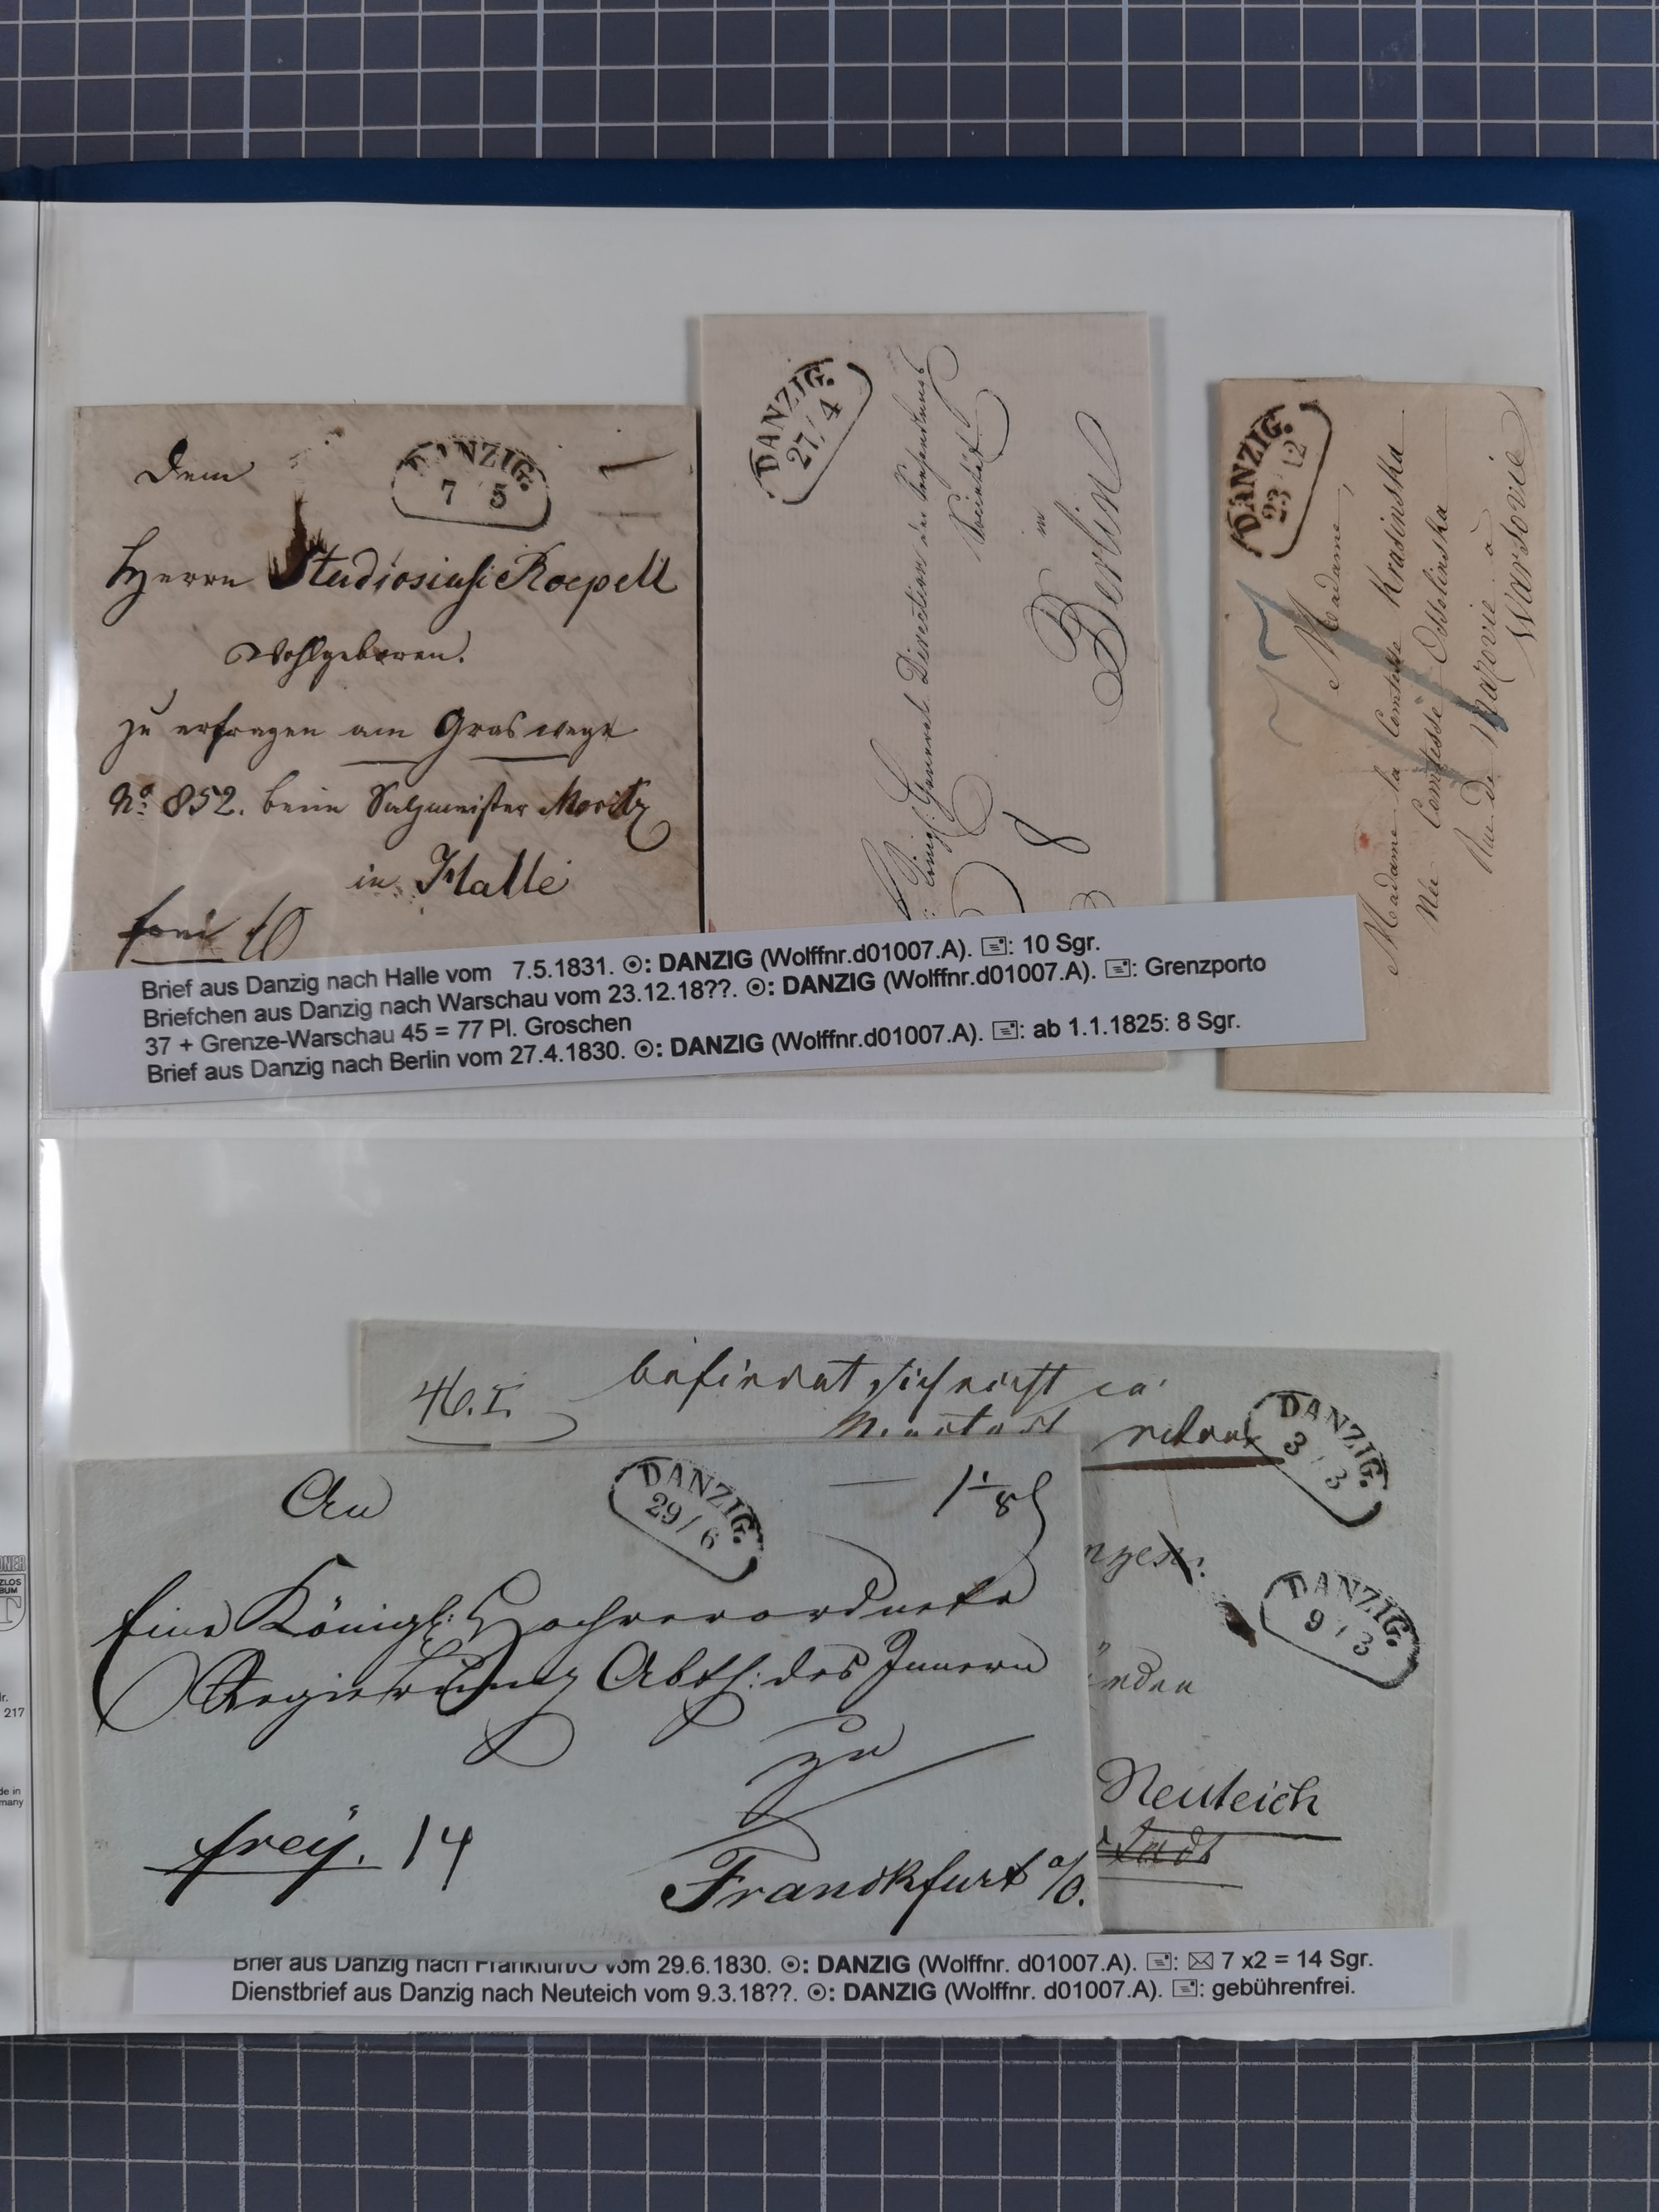 Dem
DANZIG.
7 5
Herrn Studiosiusi Roepell
Wohlgeboren.
zu erfragen am Graswege
No. 852. beim Salzmeister Moritz
in Halle
frei 10
DANZIG.
27/4
Königl. General Direction der
Societät
in
Berlin
8
DANZIG.
23 12
77
Madame,
Madame la Comtesse Krasinska
Née Comtesse Ossolinska
Rue de Mazovie à
Warsovie
Brief aus Danzig nach Halle vom 7.5.1831. ⦿: DANZIG (Wolffnr.d01007.A). 🖃: 10 Sgr.
Briefchen aus Danzig nach Warschau vom 23.12.18??. ⦿: DANZIG (Wolffnr.d01007.A). 🖃: Grenzporto
37 + Grenze-Warschau 45 = 77 Pl. Groschen
Brief aus Danzig nach Berlin vom 27.4.1830. ⦿: DANZIG (Wolffnr.d01007.A). 🖃: ab 1.1.1825: 8 Sgr.
befindet sich nicht
Neustadt
DANZIG.
3/3
DANZIG.
9/3
Neuteich
stadt
An
DANZIG.
29/6
1 1/8
Eine Königl: Hochverordnete
Regierung Abth: des Innern
zu
freÿ. 14
Frankfurt a/O.
Brief aus Danzig nach Frankfurt/O vom 29.6.1830. ⦿: DANZIG (Wolffnr. d01007.A). 🖃: ✉ 7 x2 = 14 Sgr.
Dienstbrief aus Danzig nach Neuteich vom 9.3.18??. ⦿: DANZIG (Wolffnr. d01007.A). 🖃: gebührenfrei.
217